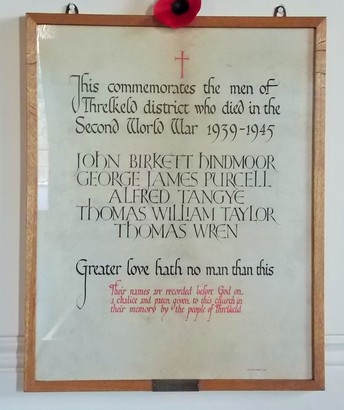 This commemorates the men of
Threlkeld district who died in the
Second World War 1939-1945
JOHN BIRKETT HINDMOOR
GEORGE JAMES PURCELL
ALFRED TANGYE
THOMAS WILLIAM TAYLOR
THOMAS WREN
Greater love hath no man than this
Their names are recorded before God on
a chalice and paten given to this church in
their memory by the people of Threlkeld